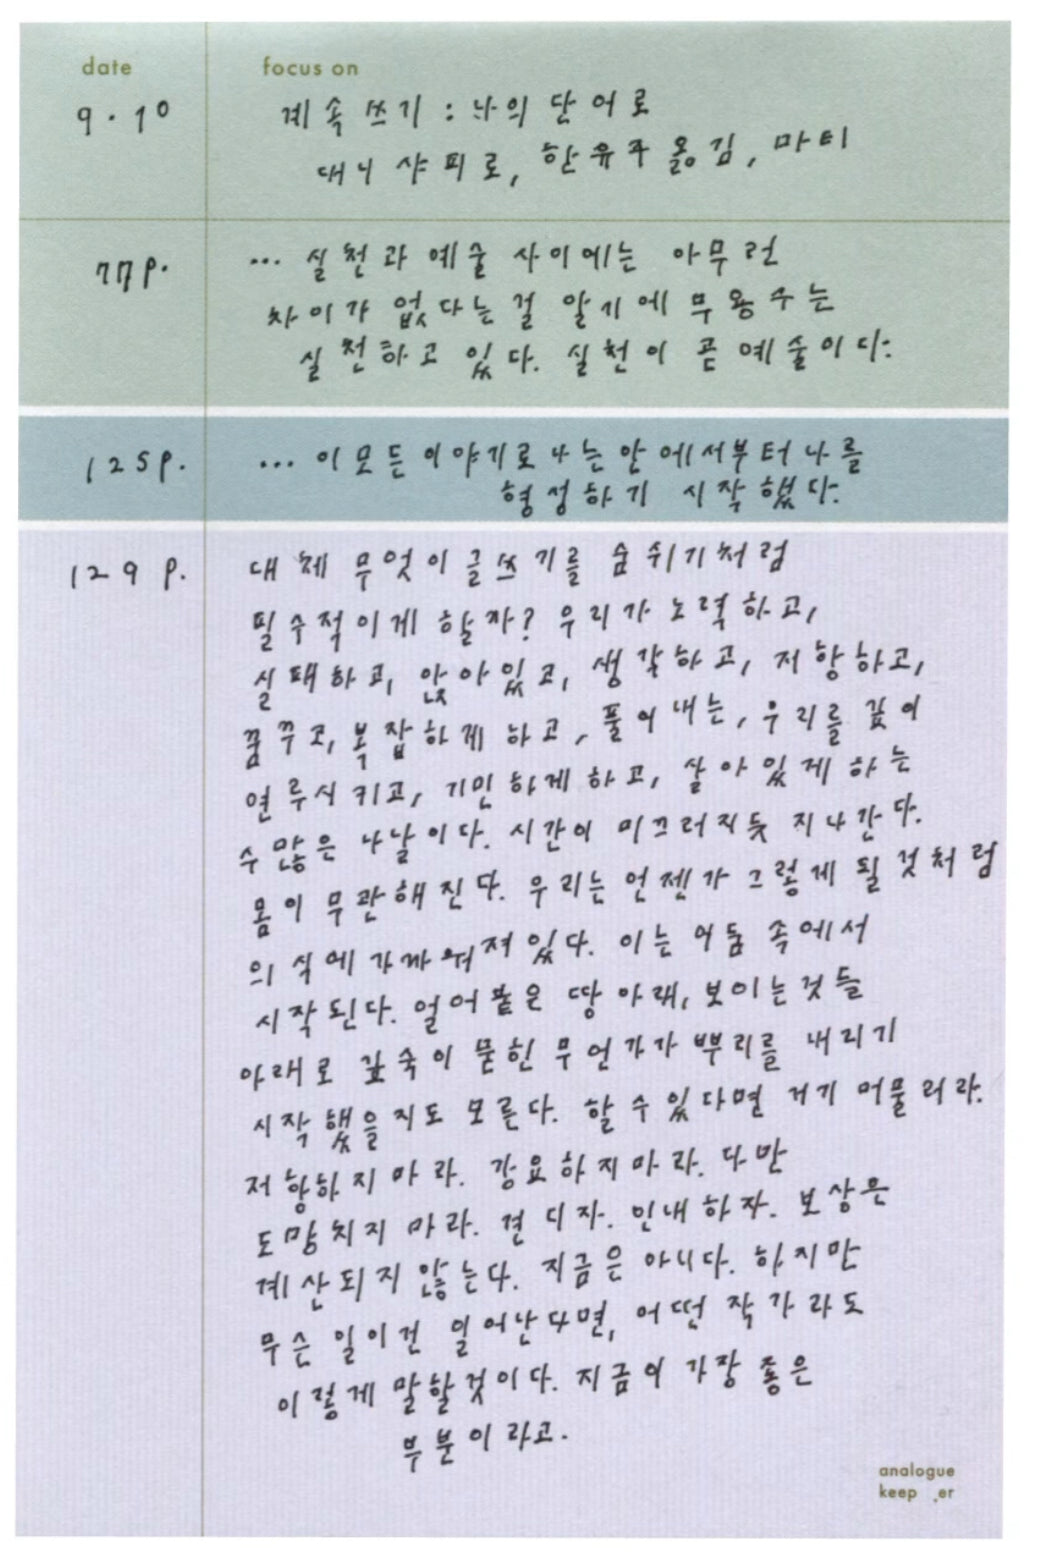 date
focus on
9.10
계속쓰기 : 나의 단어로
대니 샤피로, 한유주 옮김, 마티
77p.
... 실천과 예술 사이에는 아무런
차이가 없다는 걸 알기에 무용수는
실천하고 있다. 실천이 곧 예술이다.
125p.
... 이 모든 이야기로 나는 안에서부터 나를
형성하기 시작했다.
129 p.
대체 무엇이 글쓰기를 숨쉬기처럼
필수적이게 할까? 우리가 노력하고,
실패하고, 앉아있고, 생각하고, 저항하고,
꿈꾸고, 복잡하게 하고, 풀어내는, 우리를 깊이
연루시키고, 기민하게하고, 살아있게 하는
수많은 나날이다. 시간이 미끄러지듯 지나간다.
몸이 무관해진다. 우리는 언젠가 그렇게 될 것처럼
의식에 가까워져있다. 이는 어둠 속에서
시작된다. 얼어붙은 땅 아래, 보이는것들
아래로 깊숙이 묻힌 무언가가 뿌리를 내리기
시작했을지도 모른다. 할 수 있다면 거기 머물러라.
저항하지마라. 강요하지마라. 다만
도망치지 마라. 견디자. 인내하자. 보상은
계산되지 않는다. 지금은 아니다. 하지만
무슨 일이건 일어난다면, 어떤 작가라도
이렇게 말할것이다. 지금이 가장 좋은
부분이라고.
analogue
keep er